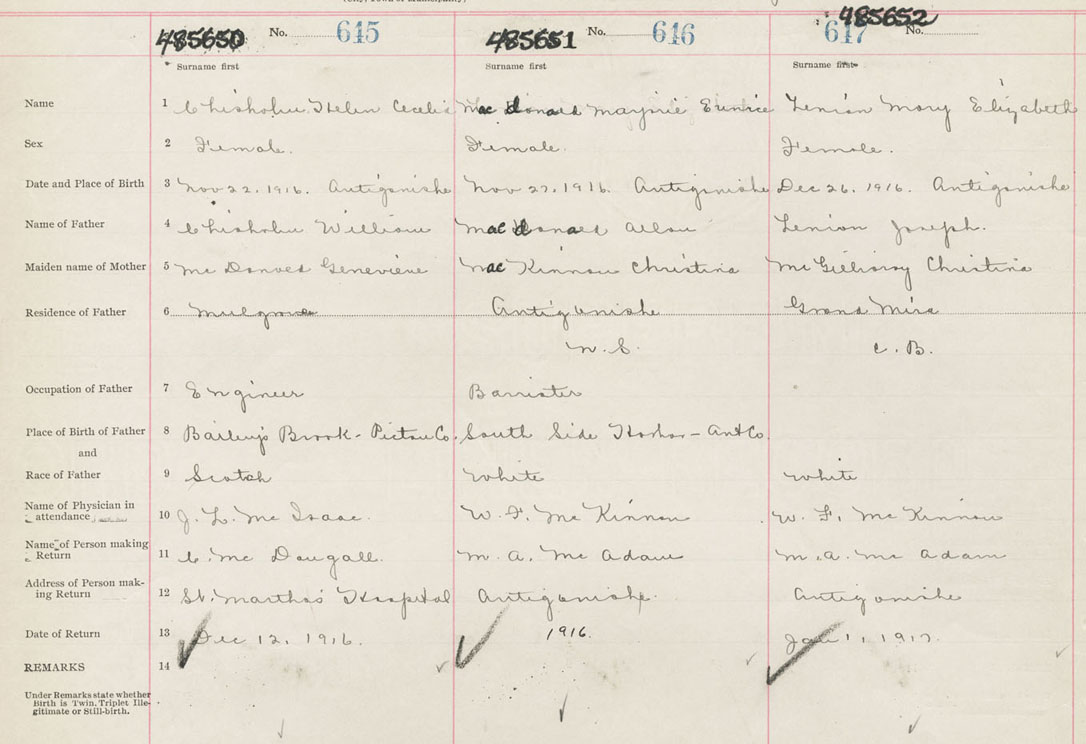 485650 No. 645 485651 No. 646 485652 647 No.
Surname first Surname first Surname first
Name 1 Chisholm Helen Cecelia Mac Donald Marjorie Eunice Lenion Mary Elizabeth
Sex 2 Female. Female. Female.
Date and Place of Birth 3 Nov 22, 1916. Antigonishe Nov 27, 1916. Antigonishe Dec 26, 1916. Antigonishe
Name of Father 4 Chisholm William Mac Donald Allan Lenion Joseph.
Maiden name of Mother 5 Mc Donald Genevieve Mac Kinnon Christina Mc Gillivray Christina
Residence of Father 6 Mulgrave Antigonishe Grand Mira
N. S. C. B.
Occupation of Father 7 Engineer Barrister
Place of Birth of Father 8 Bailey's Brook - Pictou Co. South Side Harbor - Ant Co.
and
Race of Father 9 Scotch White White
Name of Physician in
attendance 10 J. L. Mc Isaac. W. F. Mc Kinnon W. F. Mc Kinnon
Name of Person making
Return 11 C. Mc Dougall. M. A. Mc Adam M. A. Mc Adam
Address of Person mak-
ing Return 12 St. Martha's Hospital Antigonishe. Antigonishe
Date of Return 13 Dec 12, 1916. 1916. Jan 1, 1917.
REMARKS 14
Under Remarks state whether
Birth is Twin, Triplet Ille-
gitimate or Still-birth.